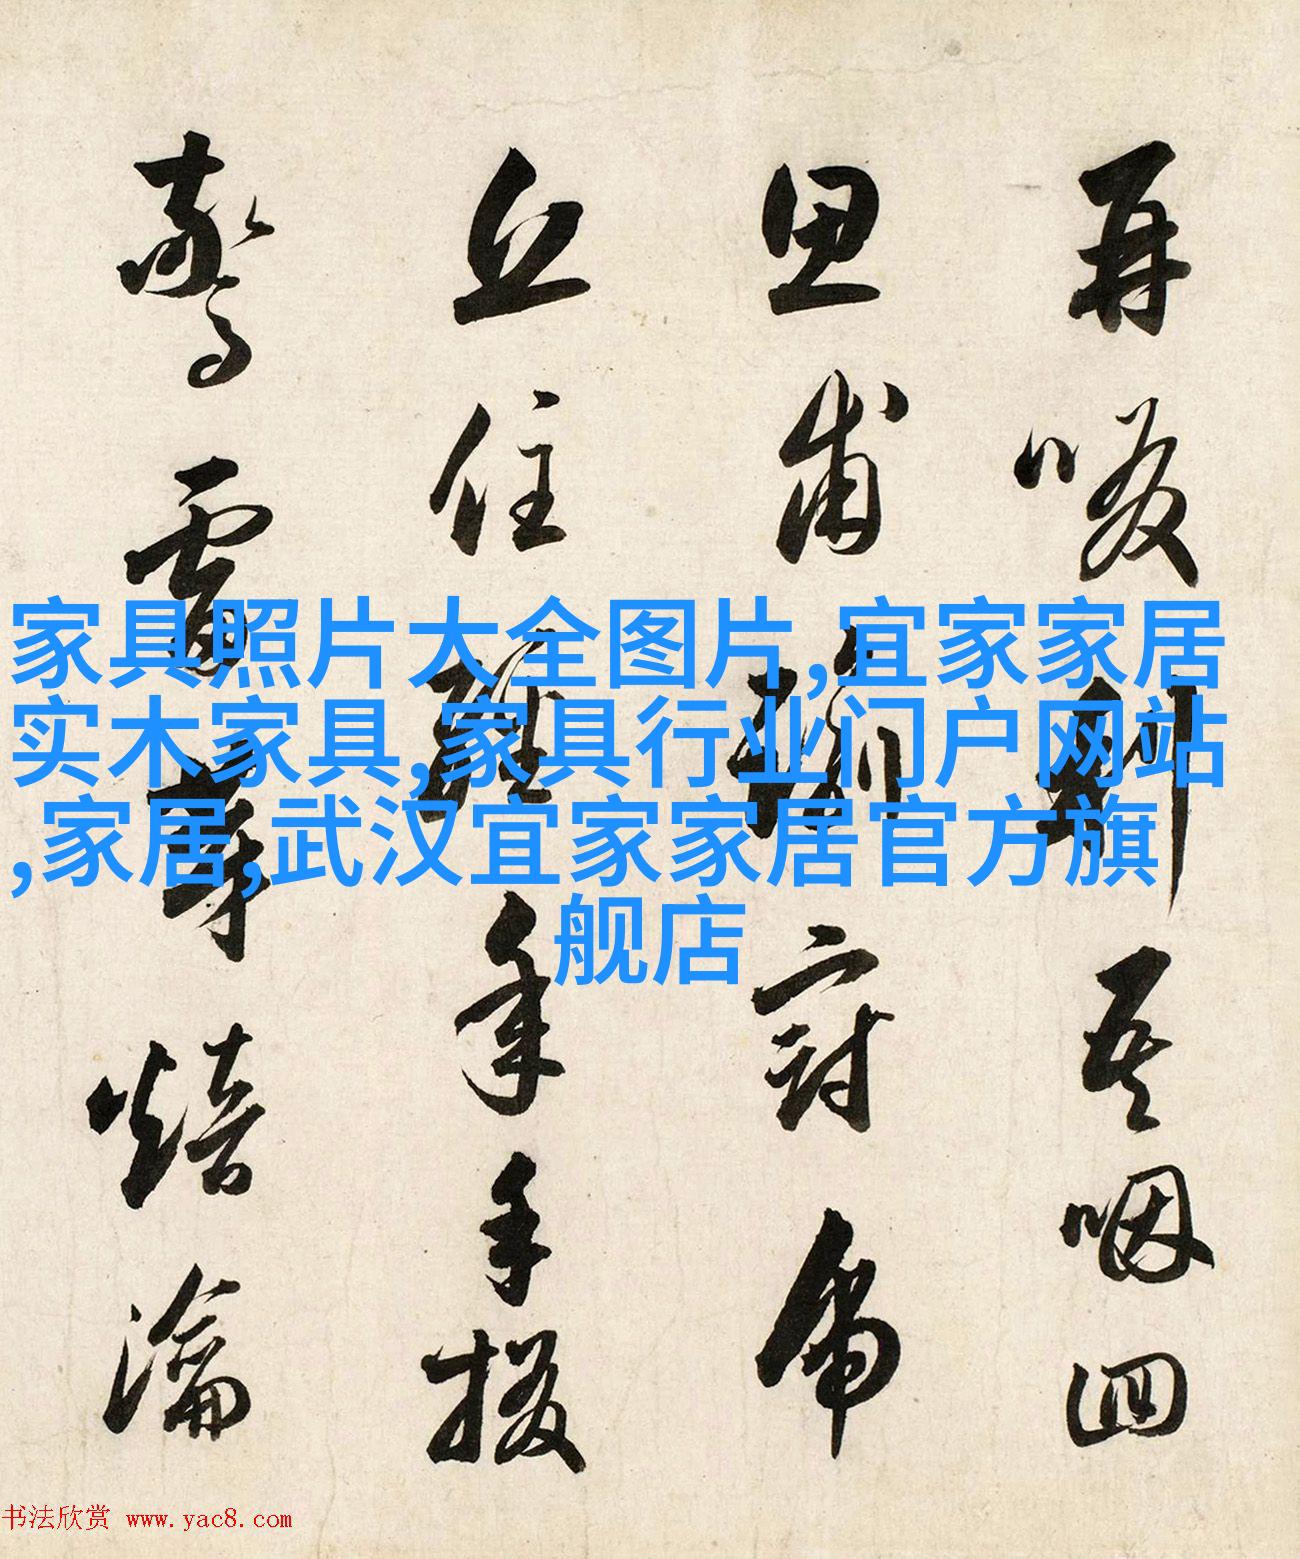 家具照片大全图片,宜家家居
实木家具,家具行业门户网站
,家居,武汉宜家家居官方旗
舰店
再啜咽
思甫
丘住年手掇
雷焙瀹
书法欣赏 www.yac8.com